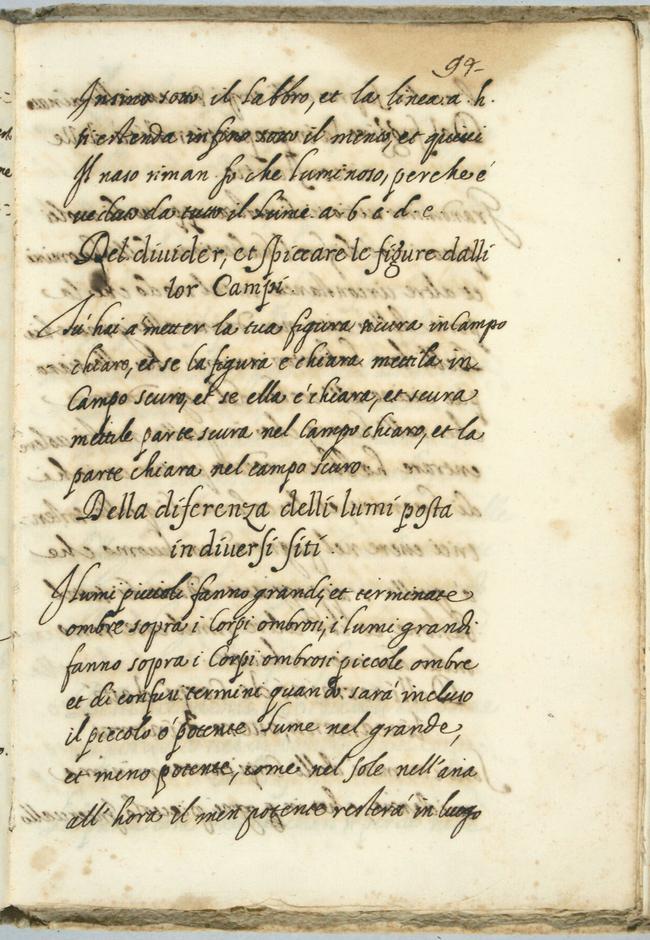 94-
Insino sotto il labbro, et la linea. a. h.
si estenda insino sotto il mento, et quivi
Il naso riman fo che luminoso, perche é
veduto da tutto il lume. a. b. c. d. e
Del divider, et spiccare le figure dalli
lor Campi
Tú hai a metter la tua figura scura in Campo
chiaro, et se la figura é chiara mettila in
Campo scuro, et se ella é chiara, et scura
mettile parte scura nel Campo chiaro, et la
parte chiara nel campo scuro
Della diferenza delli lumi posta
in diversi siti.
I lumi piccioli fanno grandi, et terminate
ombre sopra i Corpi ombrosi, i lumi grandi
fanno sopra i Corpi ombrosi piccole ombre
et di confusi termini quando sará incluso
il piccolo ó potente lume nel grande,
et meno potente, come nel sole nell'aria
all' hora il men potente resterá in luogo